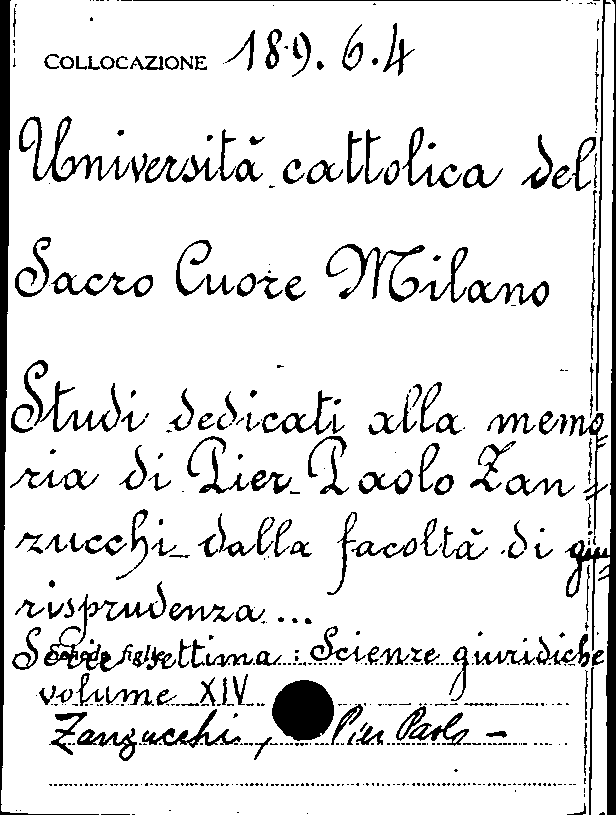 COLLOCAZIONE 189.6.4
Università cattolica del
Sacro Cuore Milano
Studi dedicati alla memo=
ria di Pier Paolo Zan=
zucchi dalla facoltà di giu=
risprudenza...
Serie settima: Scienze giuridiche
volume XIV
Zanzucchi, Pier Paolo -